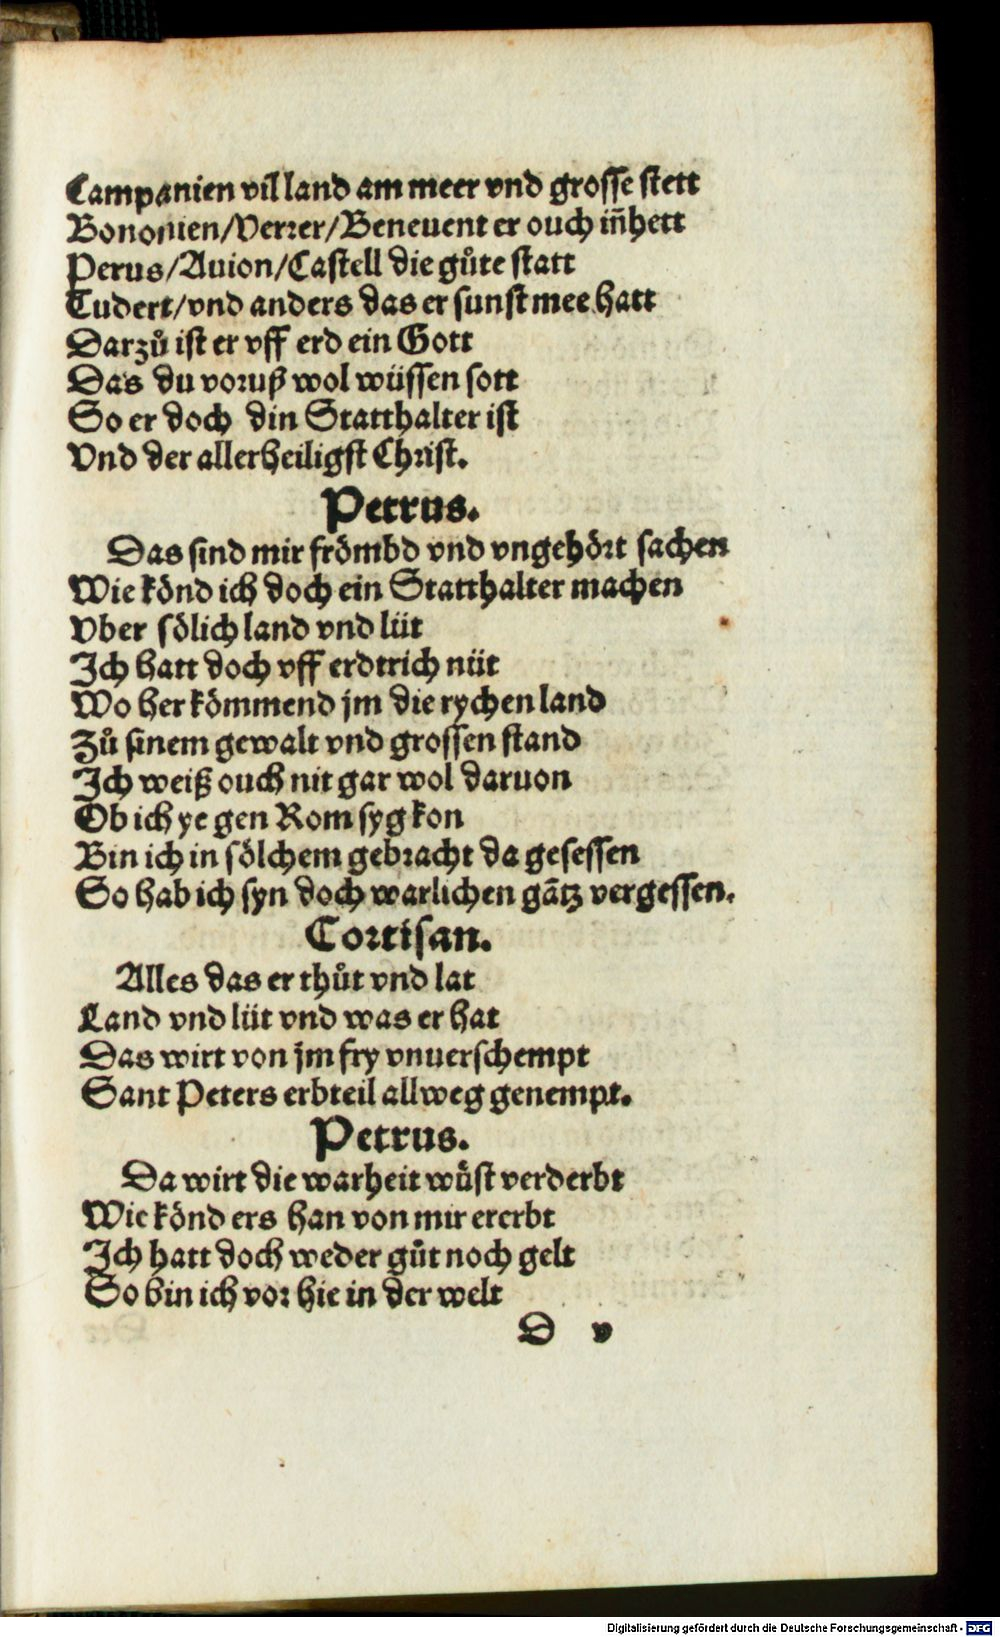 Campanien vil land am meer vnd grosse stett
Bononien/Verrer/Beneuent er ouch in̄hett
Perus/Auion/Castell die gůte statt
Tudert/vnd anders das er sunst mee hatt
Darzů ist er vff erd ein Gott
Das du voruß wol wüssen sott
So er doch din Statthalter ist
Vnd der allerheiligst Christ.
Petrus.
Das sind mir frömbd vnd vngehört sachen
Wie könd ich doch ein Statthalter machen
Vber sölich land vnd lüt
Ich hatt doch vff erdtrich nüt
Wo her kömmend jm die rychen land
Zů sinem gewalt vnd grossen stand
Ich weiß ouch nit gar wol daruon
Ob ich ye gen Rom syg kon
Bin ich in sölchem gebracht da gesessen
So hab ich syn doch warlichen gātz vergessen.
Cortisan.
Alles das er thůt vnd lat
Land vnd lüt vnd was er hat
Das wirt von jm fry vnuerschempt
Sant Peters erbteil allweg genempt.
Petrus.
Da wirt die warheit wůst verderbt
Wie könd ers han von mir ererbt
Ich hatt doch weder gůt noch gelt
So bin ich vor hie in der welt
D v
Digitalisierung gefördert durch die Deutsche Forschungsgemeinschaft - DFG